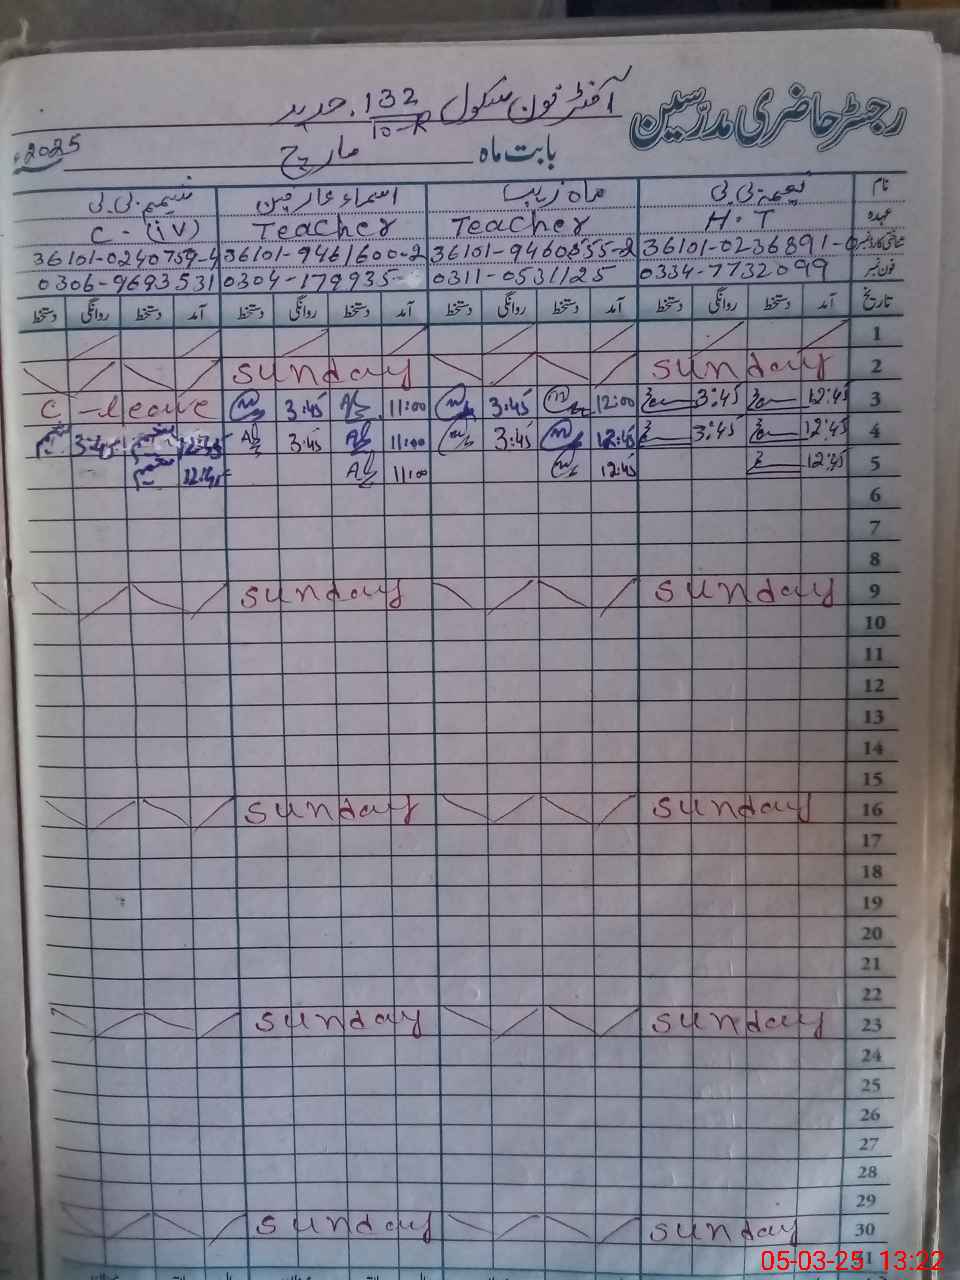 رجسٹر حاضری مدرّسین
آفٹر نون سکول 132/10-R جدید
بابت ماہ مارچ 2025ء
نام نعیمہ بی بی ماہ زیب اسماء عارفین شمیم بی بی
عہدہ H.T Teacher Teacher C-(iv)
شناختی کارڈ نمبر 36101-0236891- 36101-9460555-2 36101-9461600-2 36101-0240759-4
فون نمبر 0334-7732099 0311-0531125 0304-179935 0306-9693531
تاریخ آمد دستخط روانگی دستخط آمد دستخط روانگی دستخط آمد دستخط روانگی دستخط آمد دستخط روانگی دستخط
1
2 Sunday Sunday
3 12:45 3:45 12:00 3:45 11:00 3:45 C-leave
4 12:45 3:45 12:45 3:45 11:00 3:45 3:45
5 12:45 12:45 11:00 12:45
6
7
8
9 Sunday Sunday
10
11
12
13
14
15
16 Sunday Sunday
17
18
19
20
21
22
23 Sunday Sunday
24
25
26
27
28
29
30 Sunday Sunday
31
05-03-25 13:22